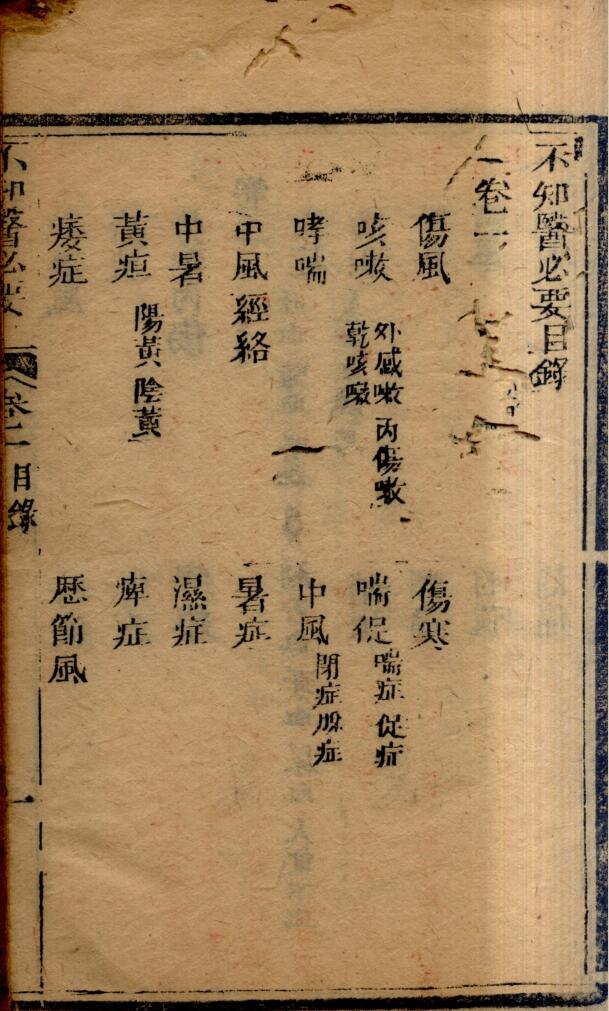 不知醫必要目錄
卷一
傷風 傷寒
咳嗽 外感嗽 內傷嗽 乾咳嗽 喘促 喘症 促症
哮喘 中風 閉症 脫症
中風經絡 暑症
中暑 濕症
黃疸 陽黃 陰黃 痺症
痿症 歷節風
不知醫必要 卷一 目錄 一